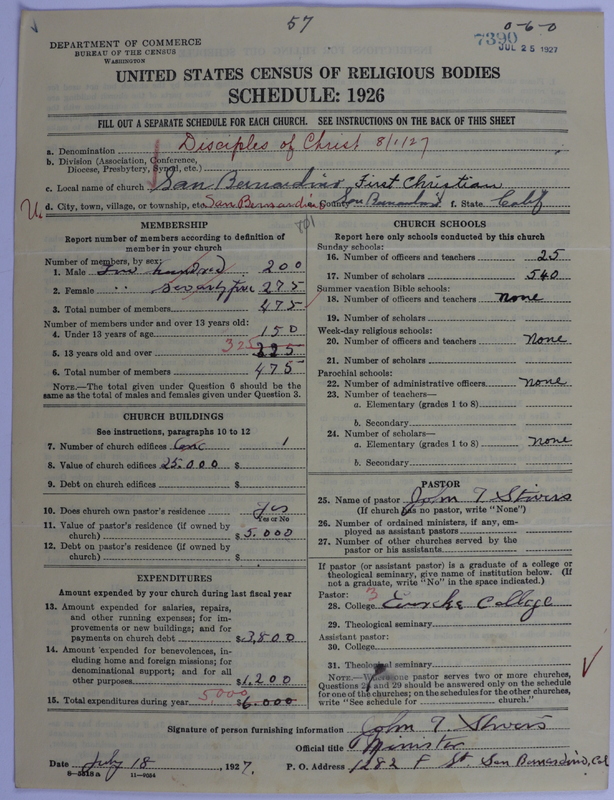 57
0-6-0
7390
JUL 25 1927
DEPARTMENT OF COMMERCE
BUREAU OF THE CENSUS
WASHINGTON
UNITED STATES CENSUS OF RELIGIOUS BODIES
SCHEDULE: 1926
FILL OUT A SEPARATE SCHEDULE FOR EACH CHURCH. SEE INSTRUCTIONS ON THE BACK OF THIS SHEET
a. Denomination Disciples of Christ 8/1/27
b. Division (Association, Conference,
Diocese, Presbytery, Synod, etc.)
c. Local name of church San Bernardino First Christian
U. d. City, town, village, or township, etc. San Bernardino County San Bernardino f. State Calif
801
MEMBERSHIP
Report number of members according to definition of
member in your church
Number of members, by sex:
1. Male Two hundred 200
2. Female " " Seventy five 275
3. Total number of members 475
Number of members under and over 13 years old:
4. Under 13 years of age 150
5. 13 years old and over 325 225
6. Total number of members 475
NOTE.—The total given under Question 6 should be
same as the total of males and females given under Question 3.
CHURCH BUILDINGS
See instructions, paragraphs 10 to 12
7. Number of church edifices One 1
8. Value of church edifices 25.000 $
9. Debt on church edifices $
10. Does church own pastor's residence Yes
Yes or No
11. Value of pastor's residence (if owned by
church) $ 5.000
12. Debt on pastor's residence (if owned by
church) $
EXPENDITURES
Amount expended by your church during last fiscal year
13. Amount expended for salaries, repairs,
and other running expenses; for im-
provements or new buildings; and for
payments on church debt $3,800
14. Amount expended for benevolences, in-
cluding home and foreign missions; for
denominational support; and for all
other purposes $1.200
5000
15. Total expenditures during year $6.000
CHURCH SCHOOLS
Report here only schools conducted by this church
Sunday schools:
16. Number of officers and teachers 25
17. Number of scholars 540
Summer vacation Bible schools:
18. Number of officers and teachers none
19. Number of scholars
Week-day religious schools:
20. Number of officers and teachers None
21. Number of scholars
Parochial schools:
22. Number of administrative officers none
23. Number of teachers—
a. Elementary (grades 1 to 8)
b. Secondary
24. Number of scholars—
a. Elementary (grades 1 to 8) none
b. Secondary
PASTOR
25. Name of pastor John T Stivers
(If church has no pastor, write "None")
26. Number of ordained ministers, if any, em-
ployed as assistant pastors
27. Number of other churches served by the
pastor or his assistants
If pastor (or assistant pastor) is a graduate of a college or
theological seminary, give name of institution below. (If
not a graduate, write "No" in the space indicated.)
Pastor: 3
28. College Eureka College
29. Theological seminary
Assistant pastor:
30. College
31. Theological seminary
NOTE.—Where one pastor serves two or more churches,
Questions 28 and 29 should be answered only on the schedule
for one of the churches; on the schedules for the other churches,
write "See schedule for church."
Signature of person furnishing information John T Stivers
Official title Minister
Date July 18, 1927. P. O. Address 1282 F St. San Bernardino, Cal
6—5518 a 11—9034